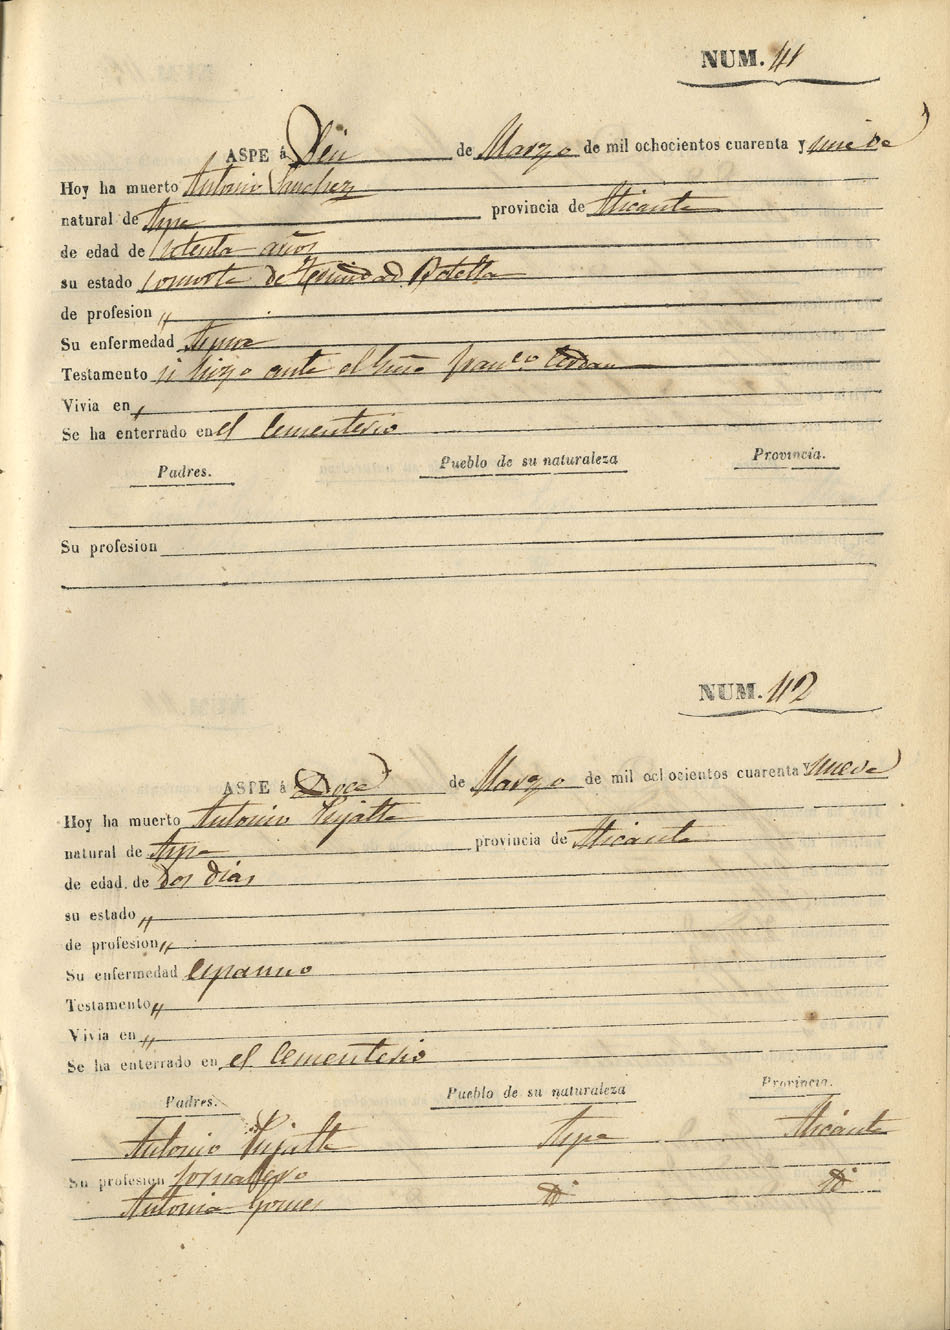 NUM. 41
ASPE á Diez de Marzo de mil ochocientos cuarenta y nueve
Hoy ha muerto Antonio Sanchez
natural de Aspe provincia de Alicante
de edad de setenta años
su estado consorte de Trinidad Botella
de profesion „
Su enfermedad
Testamento si hizo ante el Franco. Cerdan
Vivia en „
Se ha enterrado en el Cementerio
Padres. Pueblo de su naturaleza Provincia.
Su profesion
NUM. 42
ASPE á Doce de Marzo de mil ochocientos cuarenta y nueve
Hoy ha muerto Antonio
natural de Aspe provincia de Alicante
de edad de dos dias
su estado „
de profesion „
Su enfermedad
Testamento „
Vivia en „
Se ha enterrado en el Cementerio
Padres. Pueblo de su naturaleza Provincia.
Antonio Aspe Alicante
Su profesion Jornalero
Antonia Gomes